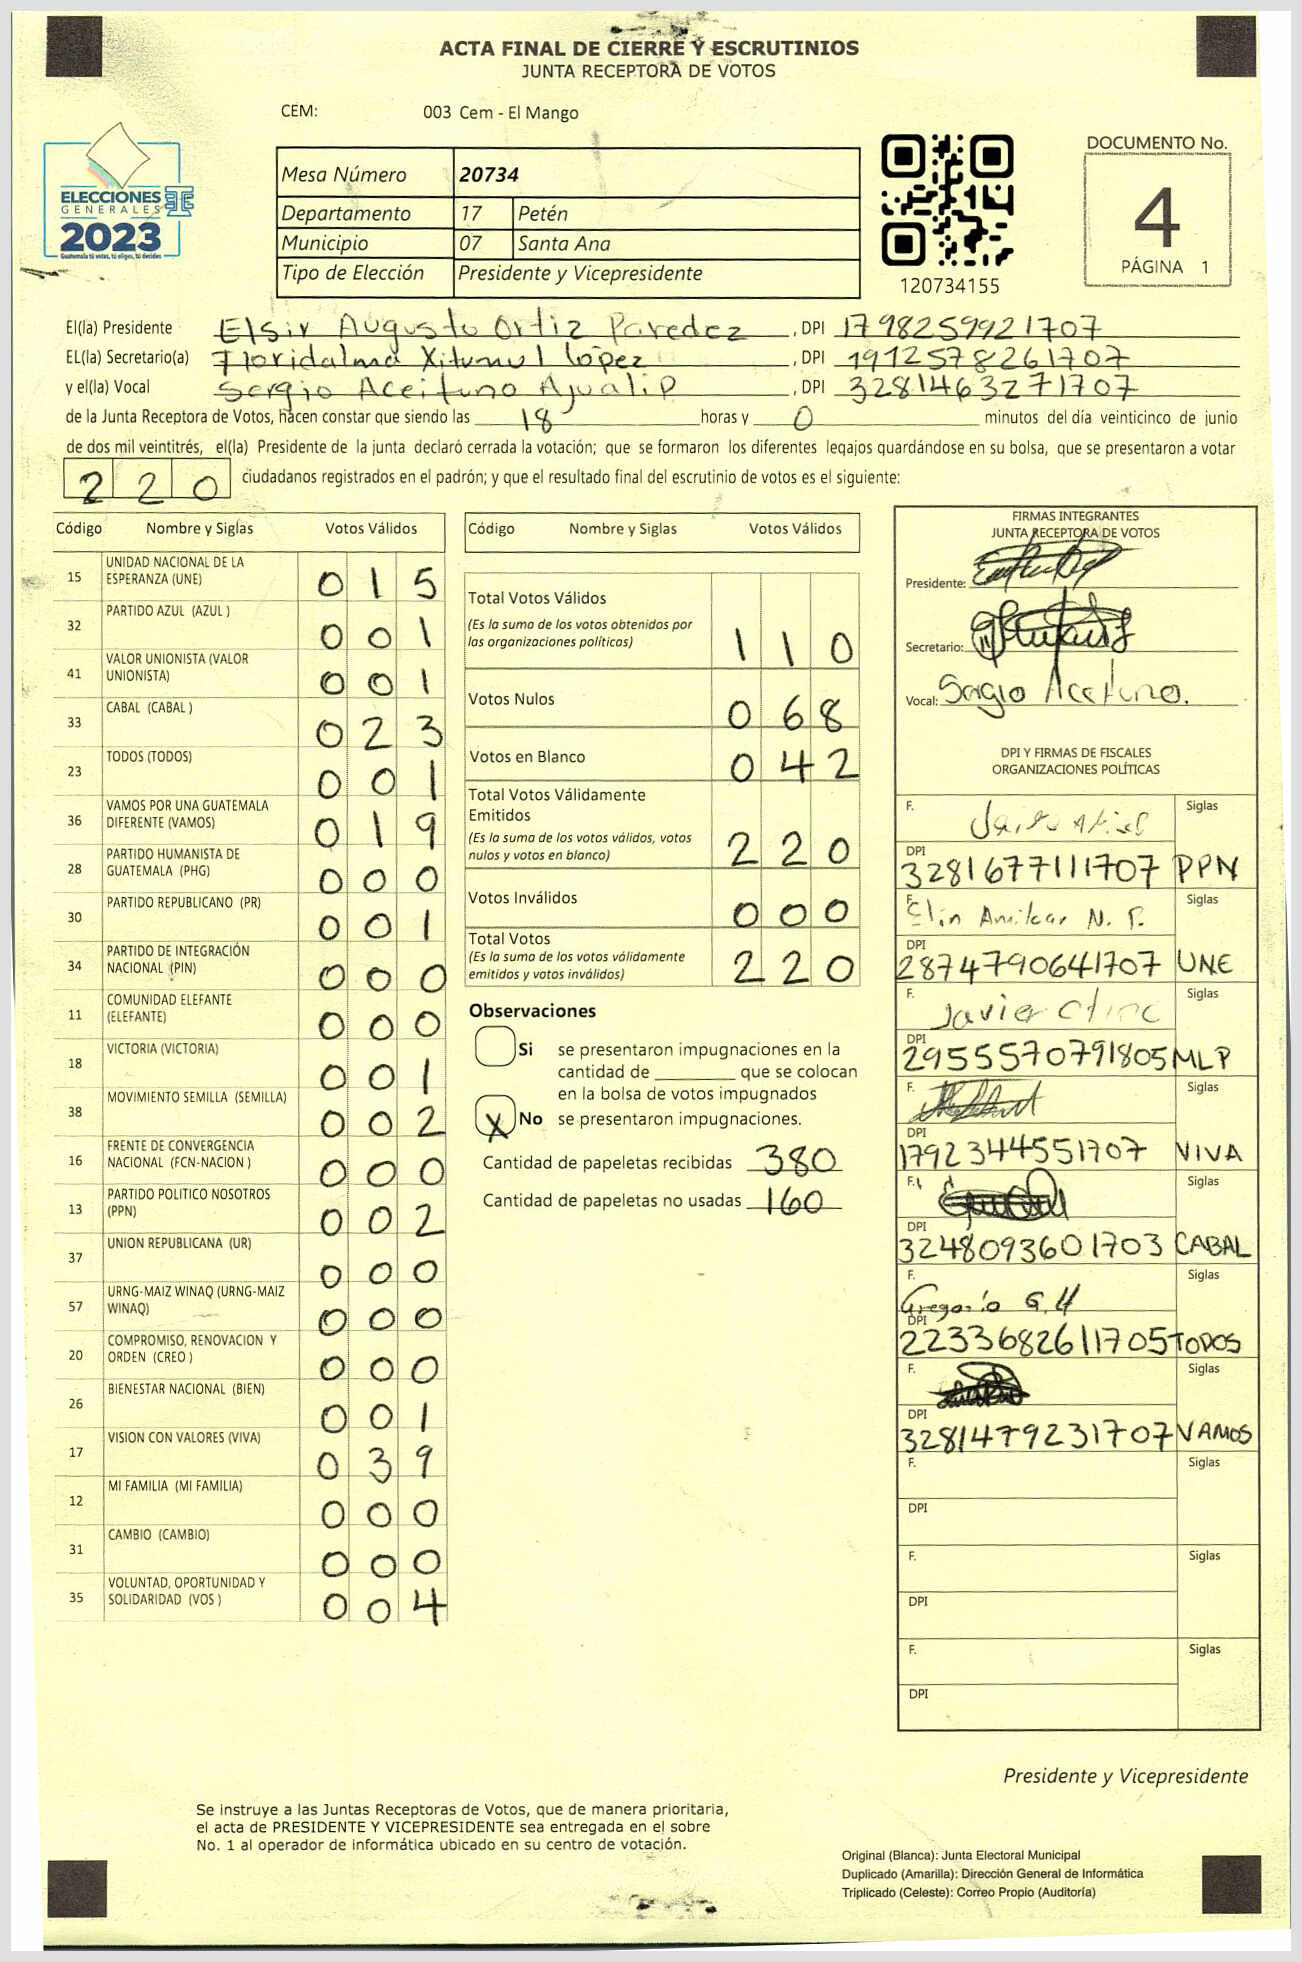 ACTA FINAL DE CIERRE Y ESCRUTINIOS
JUNTA RECEPTORA DE VOTOS
CEM: 003 Cem - El Mango
ELECCIONES
GENERALES
2023
Guatemala tú votas, tú eliges, tú decides
Mesa Número 20734
Departamento 17 Petén
Municipio 07 Santa Ana
Tipo de Elección Presidente y Vicepresidente
120734155
DOCUMENTO No.
4
PÁGINA 1
El(la) Presidente Elsir Augusto Ortiz Paredez , DPI 1798259921707
EL(la) Secretario(a) Floridalma Xitumul López , DPI 1912578261707
y el(la) Vocal Sergio Aceituno Ajualip , DPI 3281463271707
de la Junta Receptora de Votos, hacen constar que siendo las 18 horas y 0 minutos del día veinticinco de junio
de dos mil veintitrés, el(la) Presidente de la junta declaró cerrada la votación; que se formaron los diferentes legajos guardándose en su bolsa, que se presentaron a votar
220 ciudadanos registrados en el padrón; y que el resultado final del escrutinio de votos es el siguiente:
Código Nombre y Siglas Votos Válidos
15 UNIDAD NACIONAL DE LA
ESPERANZA (UNE) 015
32 PARTIDO AZUL (AZUL ) 001
41 VALOR UNIONISTA (VALOR
UNIONISTA) 001
33 CABAL (CABAL ) 023
23 TODOS (TODOS) 001
36 VAMOS POR UNA GUATEMALA
DIFERENTE (VAMOS) 019
28 PARTIDO HUMANISTA DE
GUATEMALA (PHG) 000
30 PARTIDO REPUBLICANO (PR) 001
34 PARTIDO DE INTEGRACIÓN
NACIONAL (PIN) 000
11 COMUNIDAD ELEFANTE
(ELEFANTE) 000
18 VICTORIA (VICTORIA) 001
38 MOVIMIENTO SEMILLA (SEMILLA) 002
16 FRENTE DE CONVERGENCIA
NACIONAL (FCN-NACION ) 000
13 PARTIDO POLITICO NOSOTROS
(PPN) 002
37 UNION REPUBLICANA (UR) 000
57 URNG-MAIZ WINAQ (URNG-MAIZ
WINAQ) 000
20 COMPROMISO, RENOVACION Y
ORDEN (CREO ) 000
26 BIENESTAR NACIONAL (BIEN) 001
17 VISION CON VALORES (VIVA) 039
12 MI FAMILIA (MI FAMILIA) 000
31 CAMBIO (CAMBIO) 000
35 VOLUNTAD, OPORTUNIDAD Y
SOLIDARIDAD (VOS ) 004
Código Nombre y Siglas Votos Válidos
Total Votos Válidos
(Es la suma de los votos obtenidos por
las organizaciones políticas) 110
Votos Nulos 068
Votos en Blanco 042
Total Votos Válidamente
Emitidos
(Es la suma de los votos válidos, votos
nulos y votos en blanco) 220
Votos Inválidos 000
Total Votos
(Es la suma de los votos válidamente
emitidos y votos inválidos) 220
Observaciones
Si se presentaron impugnaciones en la
cantidad de ________ que se colocan
en la bolsa de votos impugnados
X No se presentaron impugnaciones.
Cantidad de papeletas recibidas 380
Cantidad de papeletas no usadas 160
FIRMAS INTEGRANTES
JUNTA RECEPTORA DE VOTOS
Presidente:
Secretario:
Vocal: Sergio Aceituno.
DPI Y FIRMAS DE FISCALES
ORGANIZACIONES POLÍTICAS
F. Siglas
DPI
3281677111707 PPN
F. Amilcar N. P. Siglas
DPI
2874790641707 UNE
F. Javier Siglas
DPI
2955570791805 MLP
F. Siglas
DPI
1792344551707 VIVA
F. Siglas
DPI
3248093601703 CABAL
F. Gregorio G. H Siglas
DPI
2233682611705 TODOS
F. Siglas
DPI
3281479231707 VAMOS
F. Siglas
DPI
F. Siglas
DPI
F. Siglas
DPI
Presidente y Vicepresidente
Se instruye a las Juntas Receptoras de Votos, que de manera prioritaria,
el acta de PRESIDENTE Y VICEPRESIDENTE sea entregada en el sobre
No. 1 al operador de informática ubicado en su centro de votación.
Original (Blanca): Junta Electoral Municipal
Duplicado (Amarilla): Dirección General de Informática
Triplicado (Celeste): Correo Propio (Auditoría)